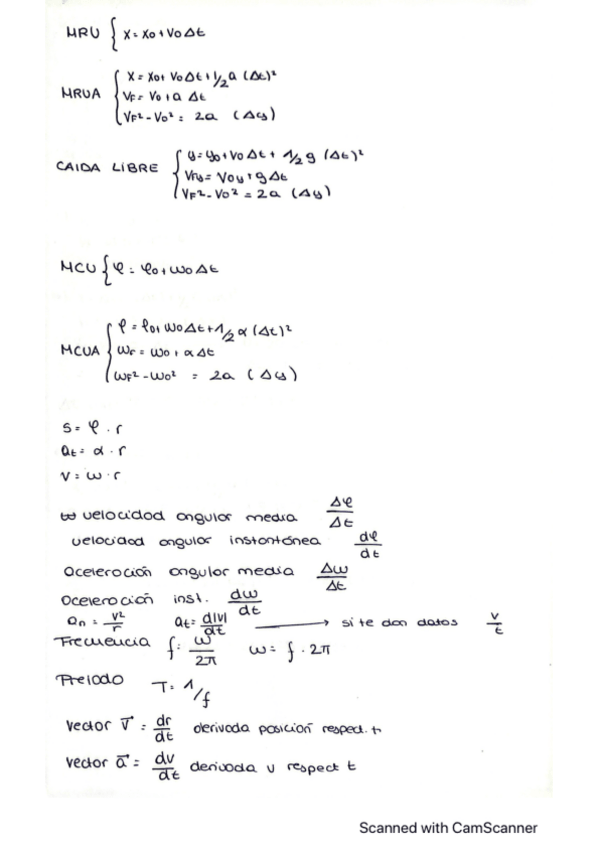 MRU { x = x0 + v0 Δt
MRUA { x = x0 + v0 Δt + 1/2 a (Δt)²
VF = V0 + a Δt
VF² - V0² = 2a (Δy)
CAIDA LIBRE { y = y0 + v0 Δt + 1/2 g (Δt)²
VFy = V0y + g Δt
VF² - V0² = 2a (Δy)
MCU { φ = φ0 + ω0 Δt
MCUA { φ = φ0 + ω0 Δt + 1/2 α (Δt)²
ωF = ω0 + α Δt
ωF² - ω0² = 2a (Δy)
s = φ · r
at = α · r
v = ω · r
velocidad angular media Δφ/Δt
velocidad angular instantánea dφ/dt
aceleración angular media Δω/Δt
aceleración inst. dω/dt
an = v²/r at = d|v|/dt → si te dan datos v/t
Frecuencia f = ω/2π ω = f · 2π
Preiodo T = 1/f
vector v⃗ = dr/dt derivada posición respect. t
vector a⃗ = dv/dt derivada v respect t
Scanned with CamScanner